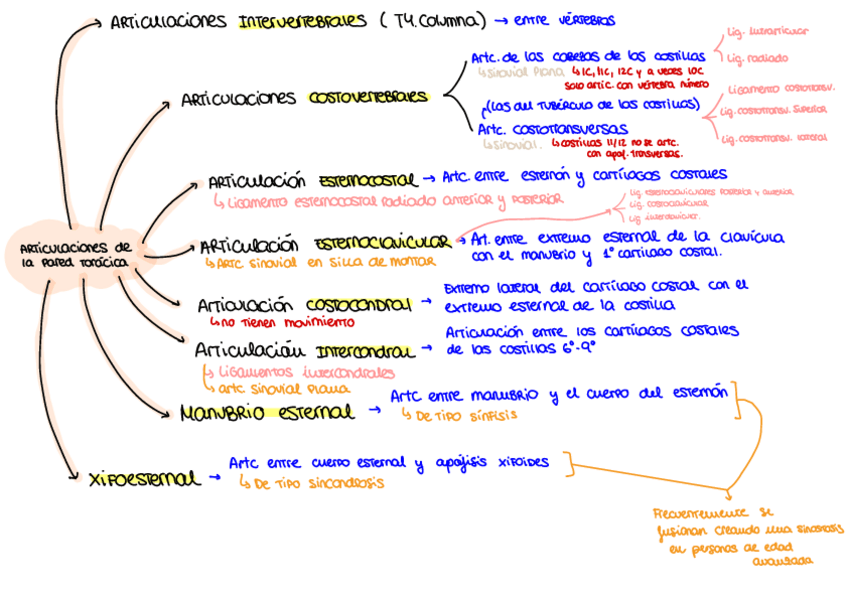 ARTICULACIONES INTERVERTEBRALES ( T4. COLUMNA) → ENTRE VÉRTEBRAS
ARTICULACIONES COSTOVERTEBRALES
Artc. de las cabezas de las costillas
↳ Sinovial plana ↳ 1C, 11C, 12C y a veces 10C
solo artic. con vértebra número
Lig. intrarticular
Lig. radiado
(Las del TUBÉRCULO de las costillas)
Artc. COSTOTRANSVERSAS
↳ Sinovial. ↳ COSTILLAS 11/12 no se artc.
con apof. transversas.
Ligamento costotransv.
Lig. costotransv. superior
Lig. costotransv. lateral
ARTICULACIÓN ESTERNOCOSTAL → Artc. entre esternón y cartílagos costales
↳ Ligamento esternocostal radiado anterior y posterior
ARTICULACIÓN ESTERNOCLAVICULAR → Art. entre extremo esternal de la clavícula
con el manubrio y 1º cartílago costal.
↳ Artc sinovial en silla de montar
Lig. esternoclaviculares posterior y anterior
Lig. costoclavicular
Lig interclavicular.
ARTICULACIONES DE
la PARED TORÁCICA
Articulación COSTOCONDRAL → Extremo lateral del cartílago costal con el
extremo esternal de la costilla
↳ no tienen movimiento
Articulación INTERCONDRAL → Articulación entre los cartílagos costales
de las costillas 6º-9º
↳ Ligamentos intercondrales
↳ artc sinovial plana
MANUBRIO ESTERNAL → Artc entre manubrio y el cuerpo del esternón
↳ De tipo sínfisis
XIFOESTERNAL → Artc entre cuerpo esternal y apófisis xifoides
↳ De tipo sincondrosis
Frecuentemente se
fusionan creando una sinostosis
en personas de edad
avanzada